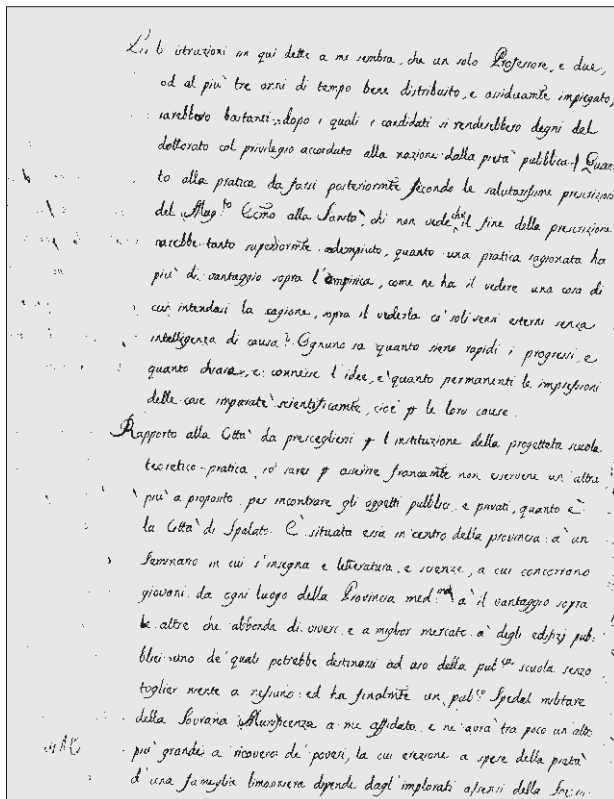 istruzioni sin qui dette a me sembra, che un solo Professore, e due,
od al più tre anni di tempo bene distribuito, e assiduamte impiegato,
sarebbero bastanti, dopo i quali i candidati si renderebbero degni del
dottorato col privilegio accordato alla nazione dalla pietà pubblica. Quan
to alla pratica da farsi posteriormte secondo le salutarissime prescrizioni
del Mag.to Ecmo alla Sanità, chi non vede, che il fine della prescrizione
sarebbe tanto superiormte adempiuto, quanto una pratica ragionata ha
più di vantaggio sopra l'empirica, come ne ha il vedere una cosa di
cui intendasi la ragione, sopra il vederla co' soli sensi esterni senza
intelligenza di causa? Ognuno sa quanto sieno rapidi i progressi, e
quanto chiare, e connesse l'idee, e quanto permanenti le impressioni
delle cose imparate scientificamte, cioè p le loro cause.
Rapporto alla Città da prescegliersi p l'instituzione della progettata scuola
teoretico-pratica, io sarei p asserire francamte non esservene un'altra
più a proposito per incontrare gli oggetti pubblici, e privati, quanto è
la Città di Spalato. È situata essa in centro della provincia: à un
Seminario in cui s'insegna e letteratura, e scienze, a cui concorrono
giovani da ogni luogo della Provincia med.ma à il vantaggio sopra
le altre che abbonda di viveri e a miglior mercato à degli edifizj pub:
blici uno de' quali potrebbe destinarsi ad uso della pub.ca scuola senza
toglier niente a nessuno: ed ha finalmte un pub.co Spedal militare
della Sovrana Munificenza a me affidato, e ne avrà tra poco un altro
più grande a ricovero de' poveri, la cui erezione a spese della pietà
d'una famiglia limosiniera dipende dagl'implorati assensi della